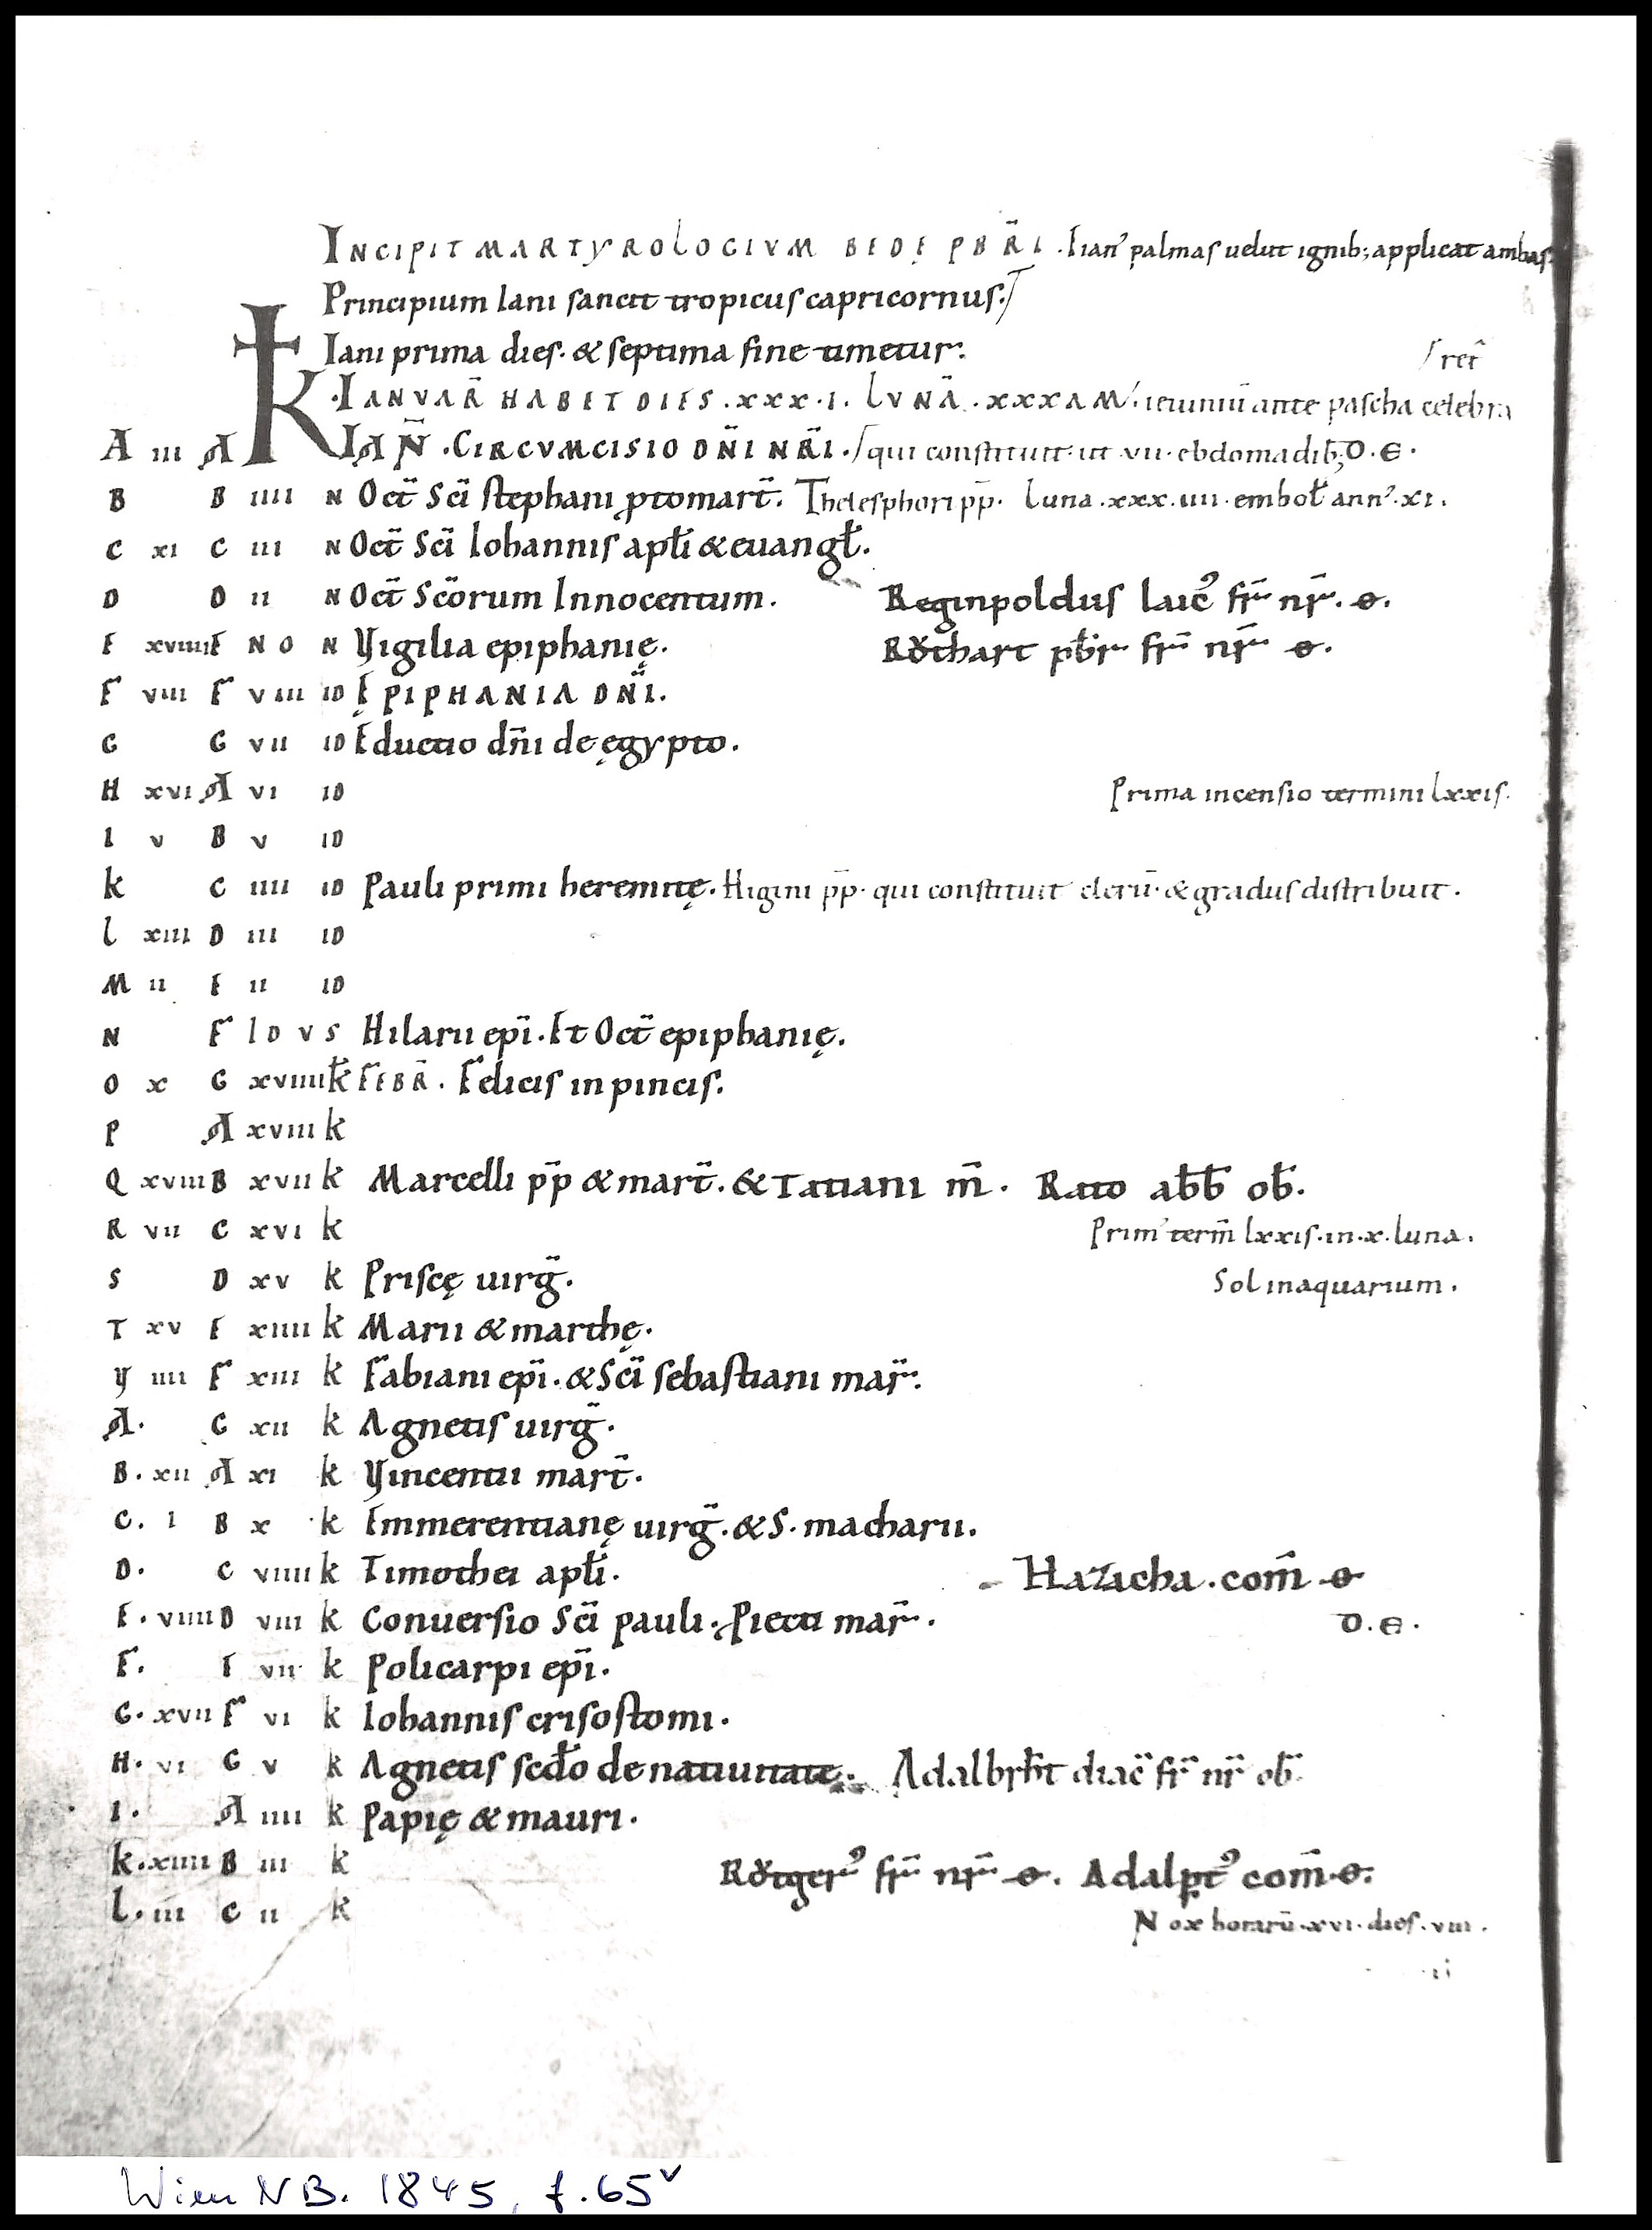 INCIPIT MARTYROLOGIVM BEDĘ PBR̄I . Iian᾽ palmas uelut ignib; applicat ambas.
Principium Iani sancit tropicus capricornus.
Iani prima dies. & septima fine timetur.
ret̄
K . IANVAR̄ HABET DIES . XXX . I . LVNĀ . XXXAM . ieiuniū ante pascha celebra
A iii A IAN̄ . CIRCVMCISIO DN̄I NR̄I . qui constituit ut vii ebdomadib; D . E .
B B iiii N Oct̄ Sc̄i stephani ꝓtomart̄. Thelesphori pp̄. Luna . xxx . iiii . embol̄ ann᾽. xi .
C xi C iii N Oct̄ Sc̄i Iohannis apl̄i & euangl̄.
D D ii N Oct̄ Sc̄orum Innocentum. Reginpoldus laic᾽ fr̄ nr̄. ɵ.
E xviiii E NO N Vigilia epiphanię. Rǒthart pb̄r fr̄ nr̄ ɵ.
F viii F viii ID ĘPIPHANIA DN̄I.
G G vii ID Eductio dn̄i de ęgypto.
H xvi A vi ID Prima incensio termini lxxis.
I v B v ID
k C iiii ID Pauli primi heremitę. Higini pp̄. qui constituit clerū. & gradus distribuit.
L xiii D iii ID
M ii E ii ID
N F IDVS Hilarii epī. Et Oct̄ epiphanię.
O x G xviiii k̄ FEBR̄ . Felicis in pincis.
P A xviii k
Q xviii B xvii k Marcelli pp̄ & mart̄. & Tatiani m̄. Rato ab̄b̄ ob̄.
R vii C xvi k Prim᾽ term̄ lxxis . in . x . luna.
S D xv k Priscę uirḡ. Sol in aquarium.
T xv E xiiii k Marii & marthę.
V iiii F xiii k Fabiani epī. & Sc̄i sebastiani mar̄.
A. G xii k Agnetis uirḡ.
B. xii A xi k Vincentii mart̄.
C. i B x k Emmerentianę uirḡ. & S. macharii.
D. C viiii k Timothei apl̄i. Hazacha . com̄ ɵ
E. viiii D viii k Conuersio Sc̄i pauli. Piecti mar̄. D . E .
F. E vii k Policarpi epī.
G. xvii F vi k Iohannis crisostomi.
H. vi G v k Agnetis scd̄o de natiuitate. Adalbrh̄t diac̄ fr̄ nr̄ ob̄
I. A iiii k Papię & mauri.
k. xiiii B iii k Rǒtger᾽ fr̄ nr̄ ɵ. Adalpt᾽ com̄. ɵ.
L. iii C ii k Nox horarū . xvi . dies . viii .
Wien NB. 1845, f. 65ᵛ